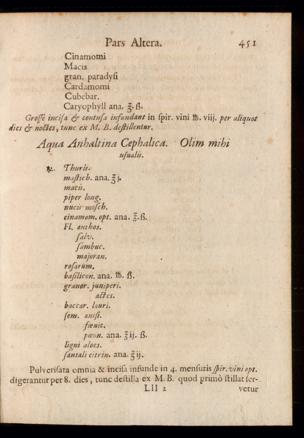 Pars Altera. 451
Cinamomi
Macis
gran. paradysi
Cardamomi
Cubebar.
Caryophyll ana. ʒ̄. ß.
Grosse incisa & contusa infundant in spir. vini ℔. viij. per aliquot
dies & noctes, tunc ex M. B. destillentur.
Aqua Anhaltina Cephalica. Olim mihi
usualis.
℞. Thuris.
mastich. ana. ʒ̄ j.
macis.
piper long.
nucis mosch.
cinamom. opt. ana. ʒ̄. ß.
Fl. anthos.
salv.
sambuc.
majoran.
rosarum.
basilicon. ana. ℔. ß.
granor. juniperi.
actes.
baccar. lauri.
sem. anisi.
fœnic.
pæon. ana. ʒ̄ ij. ß.
ligni aloes.
santali citrin. ana. ʒ̄ ij.
Pulverisata omnia & incisa infunde in 4. mensuris spir. vini opt.
digerantur per 8. dies, tunc destilla ex M. B. quod primò stillat ser-
Lll 2 vetur